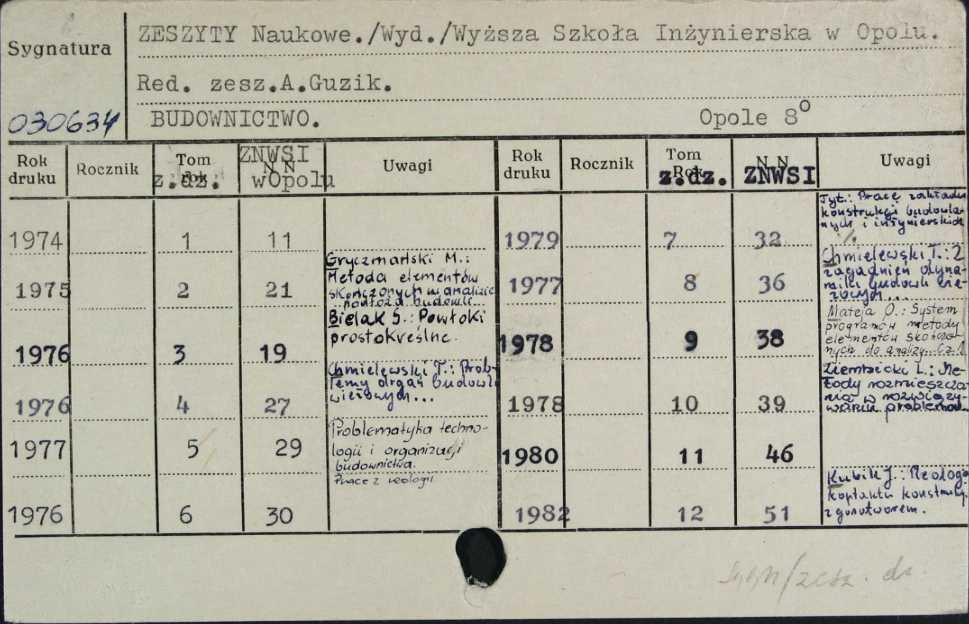 Sygnatura
ZESZYTY Naukowe./Wyd./Wyższa Szkoła Inżynierska w Opolu.
Red. zesz.A.Guzik.
030634
BUDOWNICTWO. Opole 8°
Rok druku Rocznik Tom z.dz. ZNWSI N N wOpolu Uwagi
Rok druku Rocznik Tom Rok z.dz. N N ZNWSI Uwagi
1974 1 11
1975 2 21 Gryczmański M.:
Metoda elementów
skończonych w analizie
podłoża budowli...
1976 3 19 Bielak S.: Powłoki
prostokreślne.
1976 4 27 Chmielewski T.: Prob-
lemy drgań budowli
wieżowych...
1977 5 29 Problematyka techno-
logii i organizacji
budownictwa.
1976 6 30 Prace z reologii
1979 7 32 Tyt.: Prace zakładu
konstrukcji budowla-
nych i inżynierskich
1977 8 36 Chmielewski T.: Z
zagadnień dyna-
miki budowli wie-
żowych...
1978 9 38 Mateja O.: System
programów metody
elementów skończo-
nych do analizy...Cz.1.
1978 10 39 Ziembicki L.: Me-
tody rozmieszcza-
nia w rozwiązy-
waniu problemów
1980 11 46
1982 12 51 Kubik J.: Reologa
kontaktu konstrukcji
z górotworem.
/zesz. dz.